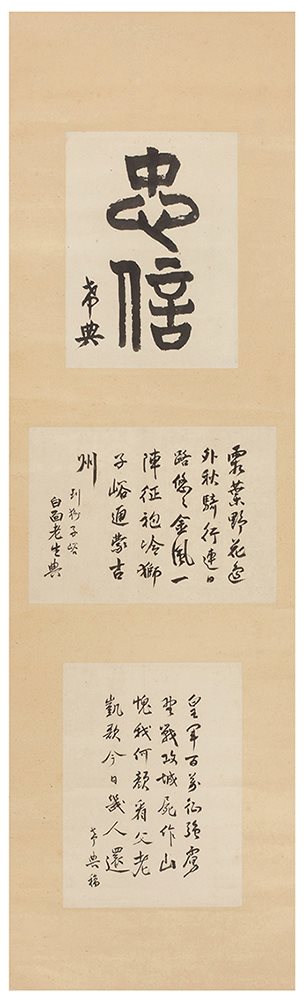 忠信
希典
霜葉野花邊
外秋騎行連日
路悠々金風一
陣征袍冷獅
子峪通蒙古
州
到獅子峪
白面老生典
皇軍百萬征強虜
野戰攻城屍作山
愧我何顔看父老
凱歌今日幾人還
希典稿